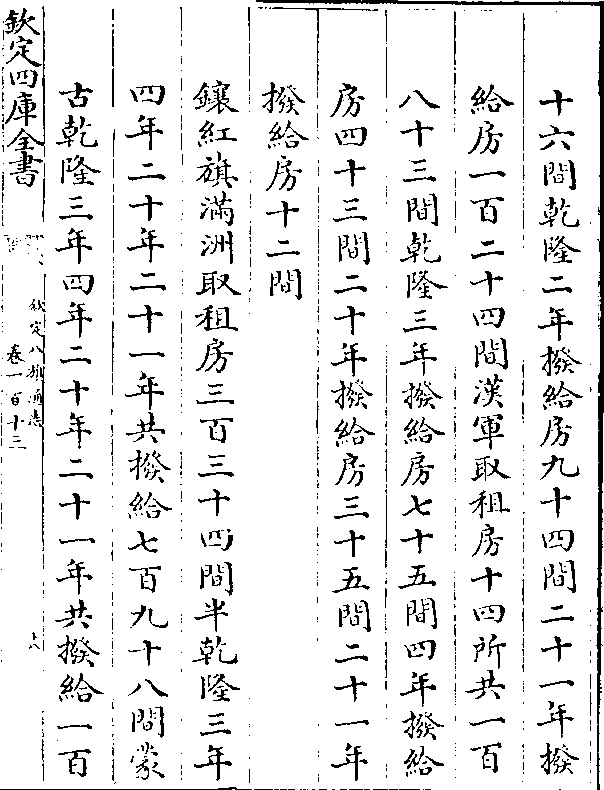 十六間乾隆二年撥給房九十四間二十一年撥
給房一百二十四間漢軍取租房十四所共一百
八十三間乾隆三年撥給房七十五間四年撥給
房四十三間二十年撥給房三十五間二十一年
撥給房十二間
鑲紅旗滿洲取租房三百三十四間半乾隆三年
四年二十年二十一年共撥給七百九十八間蒙
古乾隆三年四年二十年二十一年共撥給一百
欽定四庫全書
欽定八旗通志
卷一百十三